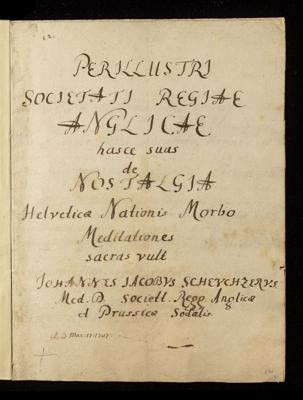 PERILLUSTRI
SOCIETATI REGIAE
ANGLICAE
hasce suas
de
NOSTALGIA
Helveticæ Nationis Morbo
Meditationes
sacras vult
IOHANNES JACOBVS SCHEVCHZERVS
Med. D. Societt. Regg. Anglicæ
et Prussicæ Sodalis.